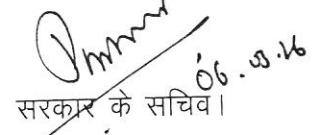 06.03.26
सरकार के सचिव।